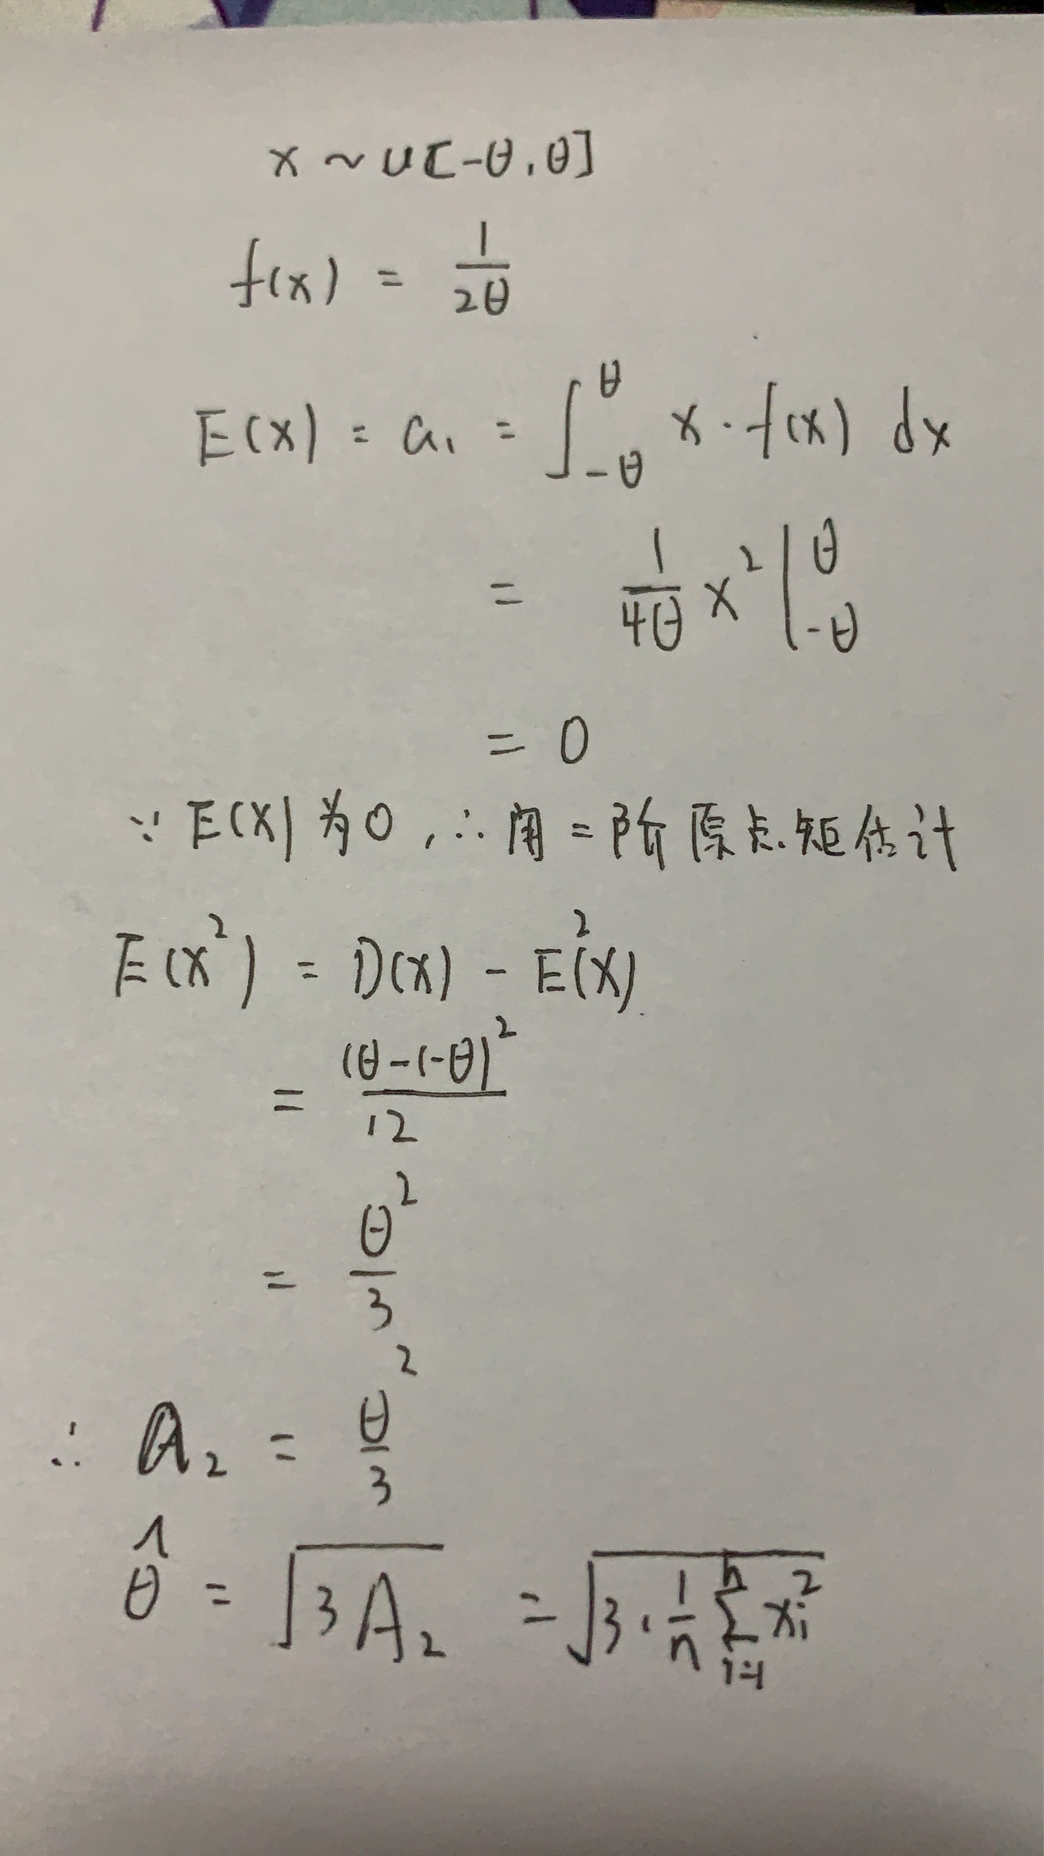 x ~ U[-θ,θ]
f(x) = 1/2θ
E(X) = a₁ = ∫_{-θ}^{θ} x·f(x) dx
= 1/4θ x² |_{-θ}^{θ}
= 0
∵ E(X)为0,∴用二阶原点矩估计
E(X²) = D(X) - E²(X)
= (θ-(-θ)²/12
= θ²/3
∴ A₂ = θ²/3
θ̂ = √(3A₂) = √(3·1/n ∑_{i=1}^{n} xᵢ²)